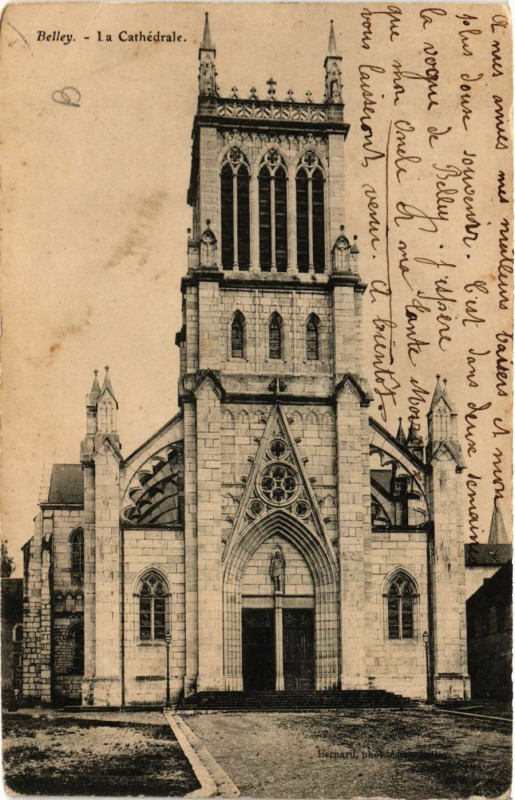 Belley. - La Cathédrale.
A mes amies mes meilleurs baisers et mon
plus doux souvenir. C'est dans deux semaines
la vogue de Belley. J'espère
que mon Oncle et ma tante
vous laisseront venir. A bientôt
Bernard, phot.